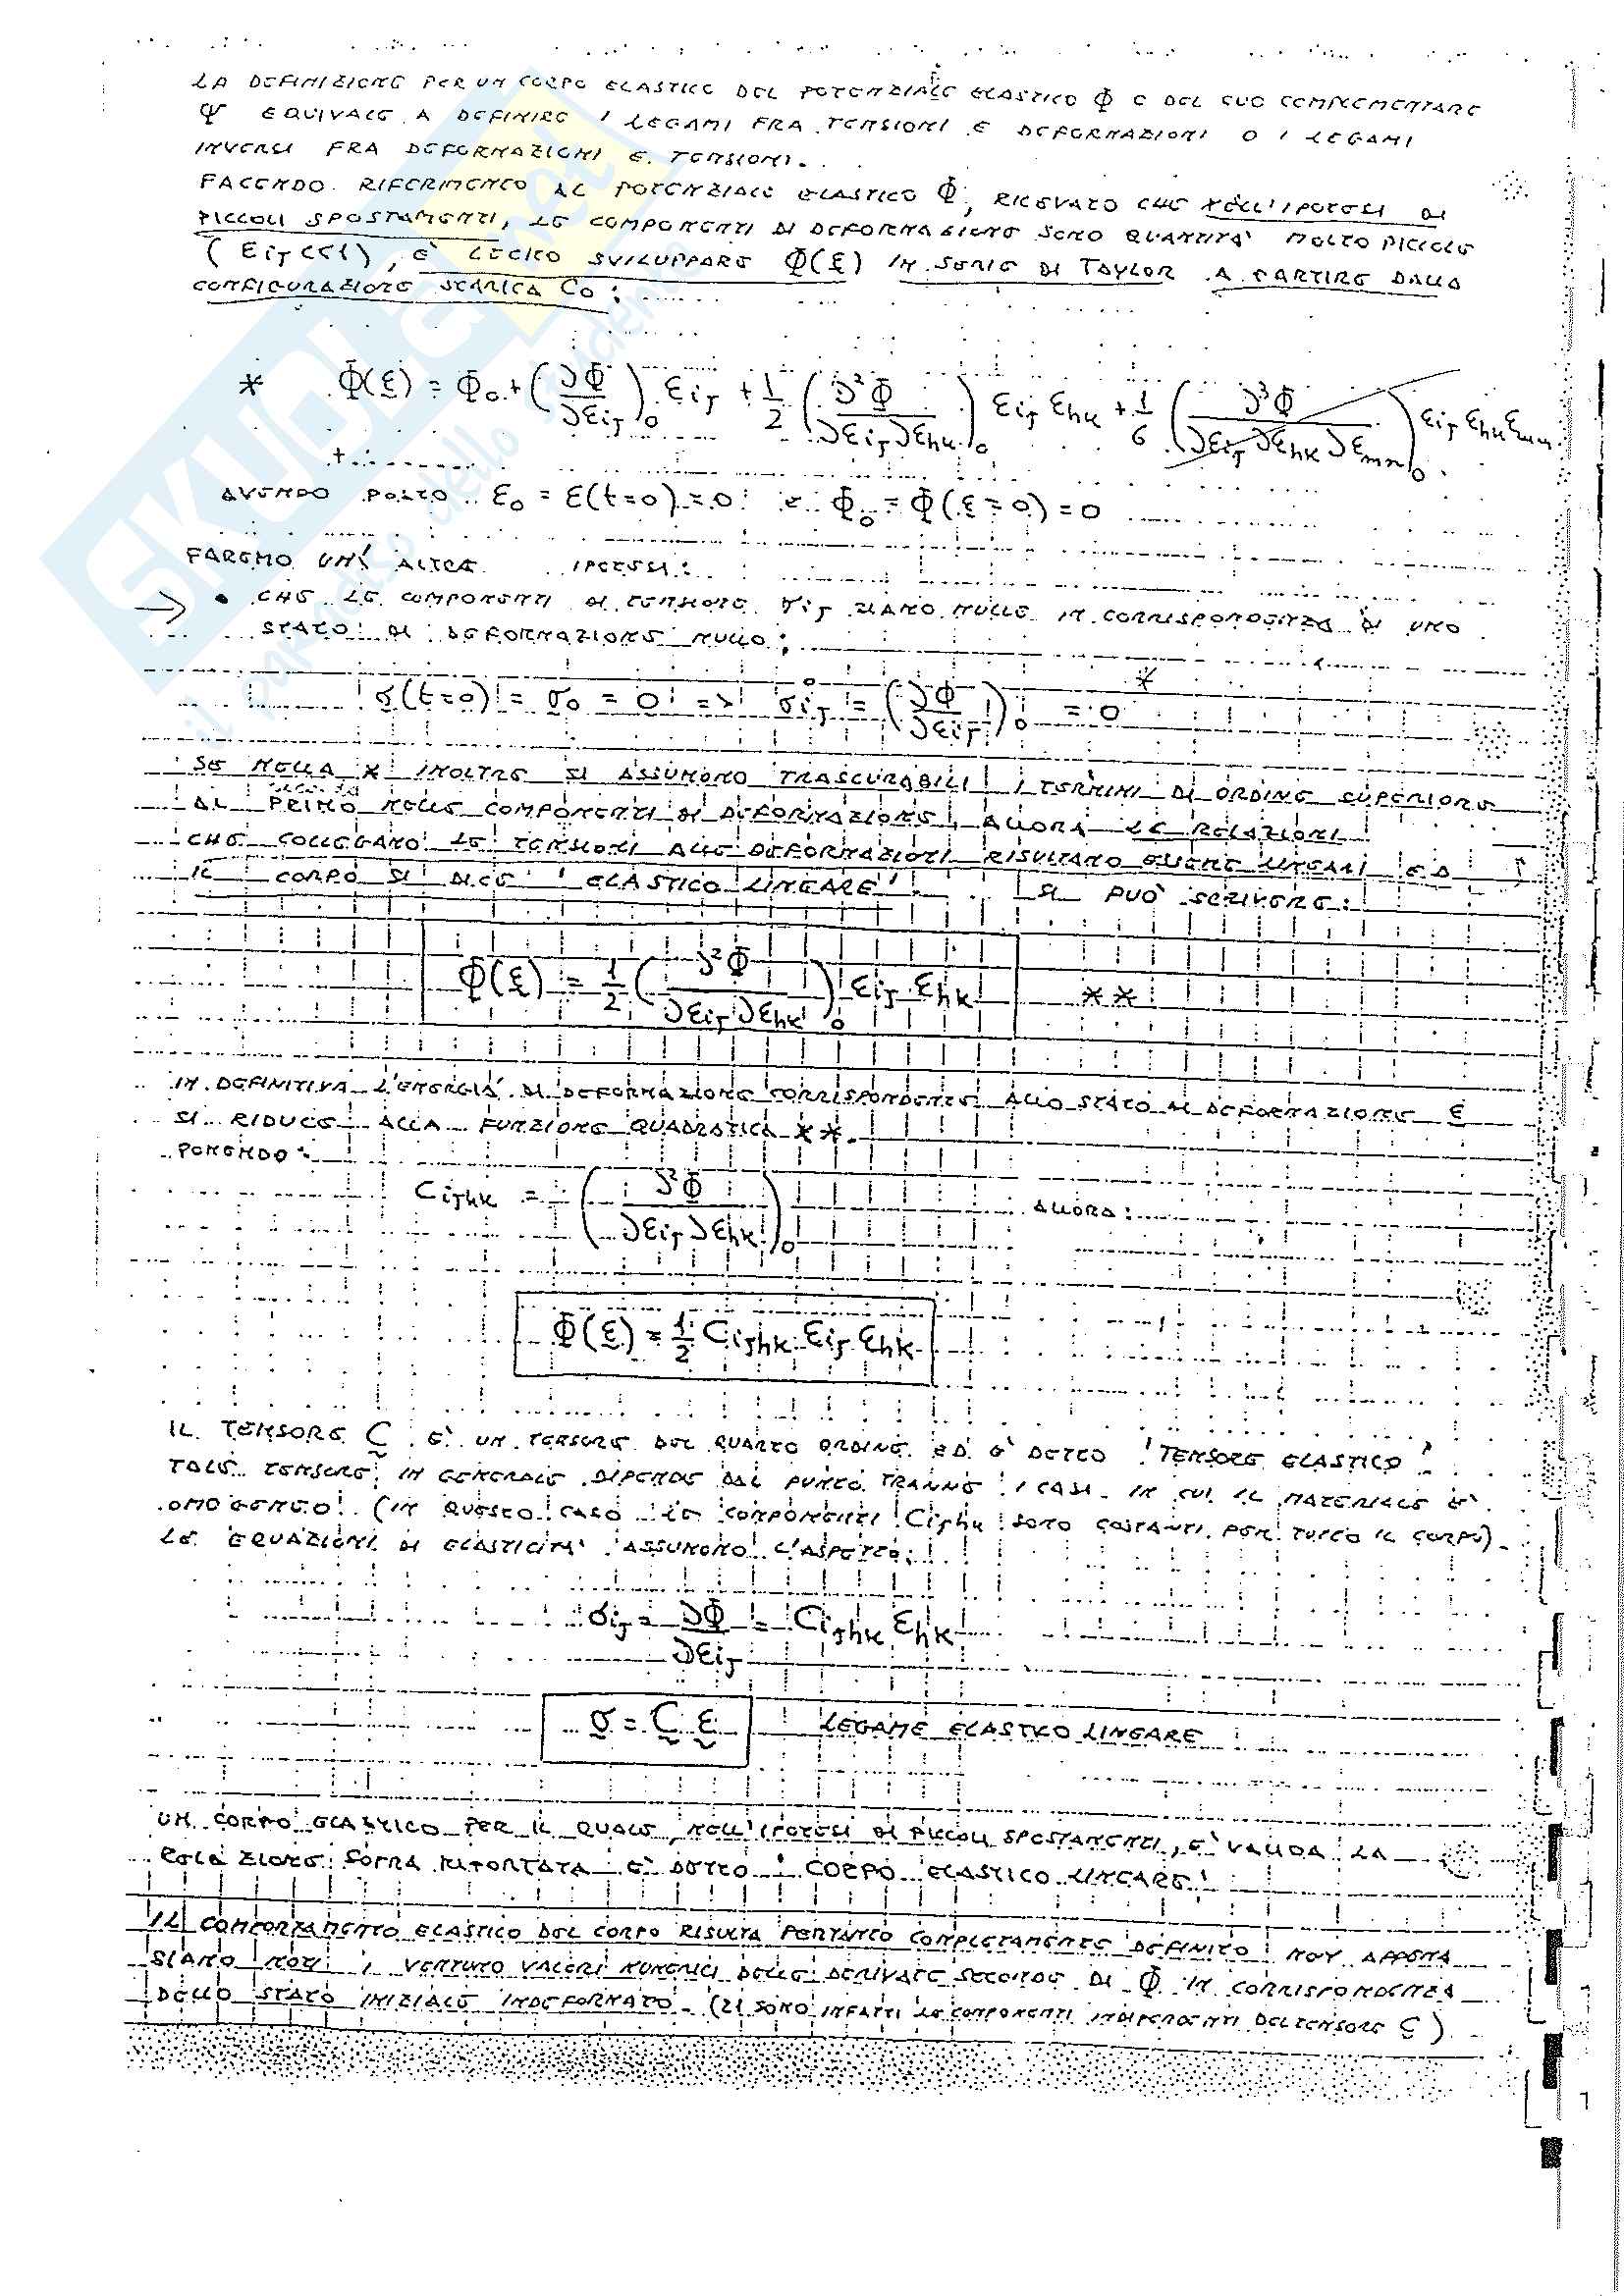 LA DEFINIZIONE PER UN CORPO ELASTICO DEL POTENZIALE ELASTICO Φ E DEL SUO COMPLEMENTARE
Ψ EQUIVALE A DEFINIRE I LEGAMI FRA TENSIONI E DEFORMAZIONI O I LEGAMI
INVERSI FRA DEFORMAZIONI E TENSIONI.
FACENDO RIFERIMENTO AL POTENZIALE ELASTICO Φ, RILEVATO CHE NELL'IPOTESI DI
PICCOLI SPOSTAMENTI, LE COMPONENTI DI DEFORMAZIONE SONO QUANTITA' MOLTO PICCOLE
(εij<<1), E' LECITO SVILUPPARE Φ(ε) IN SERIE DI TAYLOR A PARTIRE DALLA
CONFIGURAZIONE SCARICA C0:
* Φ(ε) = Φ0 + (∂Φ/∂εij)0 εij + 1/2 (∂²Φ/∂εij∂εhk)0 εij εhk + 1/6 (∂³Φ/∂εij∂εhk∂εmn)0 εij εhk εmn
+ ........
AVENDO POSTO ε0 = ε(t=0) = 0 e Φ0 = Φ(ε=0) = 0
FAREMO UN' ALTRA IPOTESI:
→ • CHE LE COMPONENTI DI TENSIONE σij SIANO NULLE IN CORRISPONDENZA DI UNO
STATO DI DEFORMAZIONE NULLO:
σ(t=0) = σ0 = 0 => σ°ij = (∂Φ/∂εij)0 = 0 *
SE NELLA * INOLTRE SI ASSUMONO TRASCURABILI I TERMINI DI ORDINE SUPERIORE
secondo
AL PRIMO NELLE COMPONENTI DI DEFORMAZIONE, ALLORA LE RELAZIONI
CHE COLLEGANO LE TENSIONI ALLE DEFORMAZIONI RISULTANO ESSERE LINEARI ED
IL CORPO SI DICE 'ELASTICO LINEARE'. SI PUÒ SCRIVERE:
Φ(ε) = 1/2 (∂²Φ/∂εij∂εhk)0 εij εhk **
IN DEFINITIVA L'ENERGIA DI DEFORMAZIONE CORRISPONDENTE ALLO STATO DI DEFORMAZIONE ε
SI RIDUCE ALLA FUNZIONE QUADRATICA **.
PONENDO:
Cijhk = (∂²Φ/∂εij∂εhk)0 ALLORA:
Φ(ε) = 1/2 Cijhk εij εhk
IL TENSORE C E' UN TENSORE DEL QUARTO ORDINE ED E' DETTO 'TENSORE ELASTICO'
TALE TENSORE IN GENERALE DIPENDE DAL PUNTO TRANNE I CASI IN CUI IL MATERIALE E'
OMOGENEO. (IN QUESTO CASO LE COMPONENTI Cijhk SONO COSTANTI PER TUTTO IL CORPO).
LE EQUAZIONI DI ELASTICITA' ASSUMONO L'ASPETTO:
σij = ∂Φ/∂εij = Cijhk εhk
σ = C ε LEGAME ELASTICO LINEARE
UN CORPO ELASTICO PER IL QUALE, NELL'IPOTESI DI PICCOLI SPOSTAMENTI, E' VALIDA LA
RELAZIONE SOPRA RIPORTATA E' DETTO 'CORPO ELASTICO LINEARE'
IL COMPORTAMENTO ELASTICO DEL CORPO RISULTA PERTANTO COMPLETAMENTE DEFINITO NON APPENA
SIANO NOTI I VENTUNO VALORI NUMERICI DELLE DERIVATE SECONDE DI Φ IN CORRISPONDENZA
DELLO STATO INIZIALE INDEFORMATO. (21 SONO INFATTI LE COMPONENTI INDIPENDENTI DEL TENSORE C)